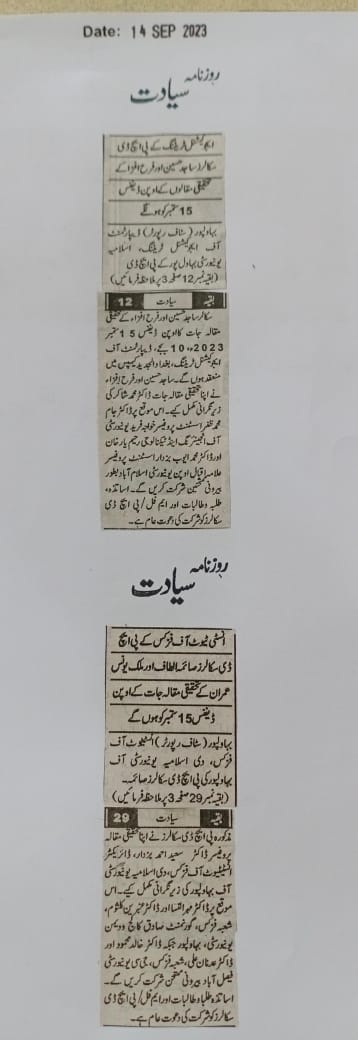 Date: 14 SEP 2023
روزنامہ سیادت
ایجوکیشنل ٹریننگ کے پی ایچ ڈی
سکالرز ساجد حسین اور فرح افزا کے
تحقیقی مقالوں کے اوپن ڈیفنس
15 ستمبر کو ہونگے
بہاولپور (سٹاف رپورٹر) ڈیپارٹمنٹ
آف ایجوکیشنل ٹریننگ، اسلامیہ
یونیورسٹی بہاول پور کے پی ایچ ڈی
(بقیہ نمبر 12 صفحہ 3 پر ملاحظہ فرمائیں)
بقیہ سیادت 12
سکالر ساجد حسین اور فرح افزاء کے تحقیقی
مقالہ جات کا اوپن ڈیفنس 15 ستمبر
2023ء 10 بجے، ڈیپارٹمنٹ آف
ایجوکیشنل ٹریننگ، بغداد الجدید کیمپس میں
منعقد ہوں گے۔ ساجد حسین اور فرح افزاء
نے اپنا تحقیقی مقالہ جات ڈاکٹر محمد شاکر کی
زیر نگرانی مکمل کیے۔ اس موقع پر ڈاکٹر جام
محمد ظفر اسسٹنٹ پروفیسر خواجہ فرید یونیورسٹی
آف انجینئرنگ اینڈ ٹیکنالوجی رحیم یار خان
اور ڈاکٹر محمد ایوب بزدار اسسٹنٹ پروفیسر
علامہ اقبال اوپن یونیورسٹی اسلام آباد بطور
بیرونی ممتحین شرکت کریں گے۔ اساتذہ،
طلبہ و طالبات اور ایم فل / پی ایچ ڈی
سکالرز کو شرکت کی دعوت عام ہے۔
روزنامہ سیادت
انسٹی ٹیوٹ آف فزکس کے پی ایچ
ڈی سکالرز صائمہ الطاف اور ملک یونس
عمران کے تحقیقی مقالہ جات کے اوپن
ڈیفنس 15 ستمبر کو ہوں گے
بہاولپور (سٹاف رپورٹر) انسٹیٹیوٹ آف
فزکس، دی اسلامیہ یونیورسٹی آف
بہاولپور کی پی ایچ ڈی سکالرز صائمہ۔
(بقیہ نمبر 29 صفحہ 3 پر ملاحظہ فرمائیں)
بقیہ سیادت 29
مذکورہ پی ایچ ڈی سکالرز نے اپنا تحقیقی مقالہ
پروفیسر ڈاکٹر سعید احمد بزدار، ڈائریکٹر
انسٹیٹیوٹ آف فزکس، دی اسلامیہ یونیورسٹی
آف بہاولپور کی زیر نگرانی مکمل کیے۔ اس
موقع پر ڈاکٹر مہر النسا اور ڈاکٹر عنبرین کلثوم،
شعبہ فزکس، گورنمنٹ صادق کالج ویمن
یونیورسٹی، بہاولپور جبکہ ڈاکٹر خالد محمود اور
ڈاکٹر عدنان علی، شعبہ فزکس، جی سی یونیورسٹی
فیصل آباد بیرونی ممتحن شرکت کریں گے۔
اساتذہ طلبا و طالبات اور ایم فل / پی ایچ ڈی
سکالرز کو شرکت کی دعوت عام ہے۔